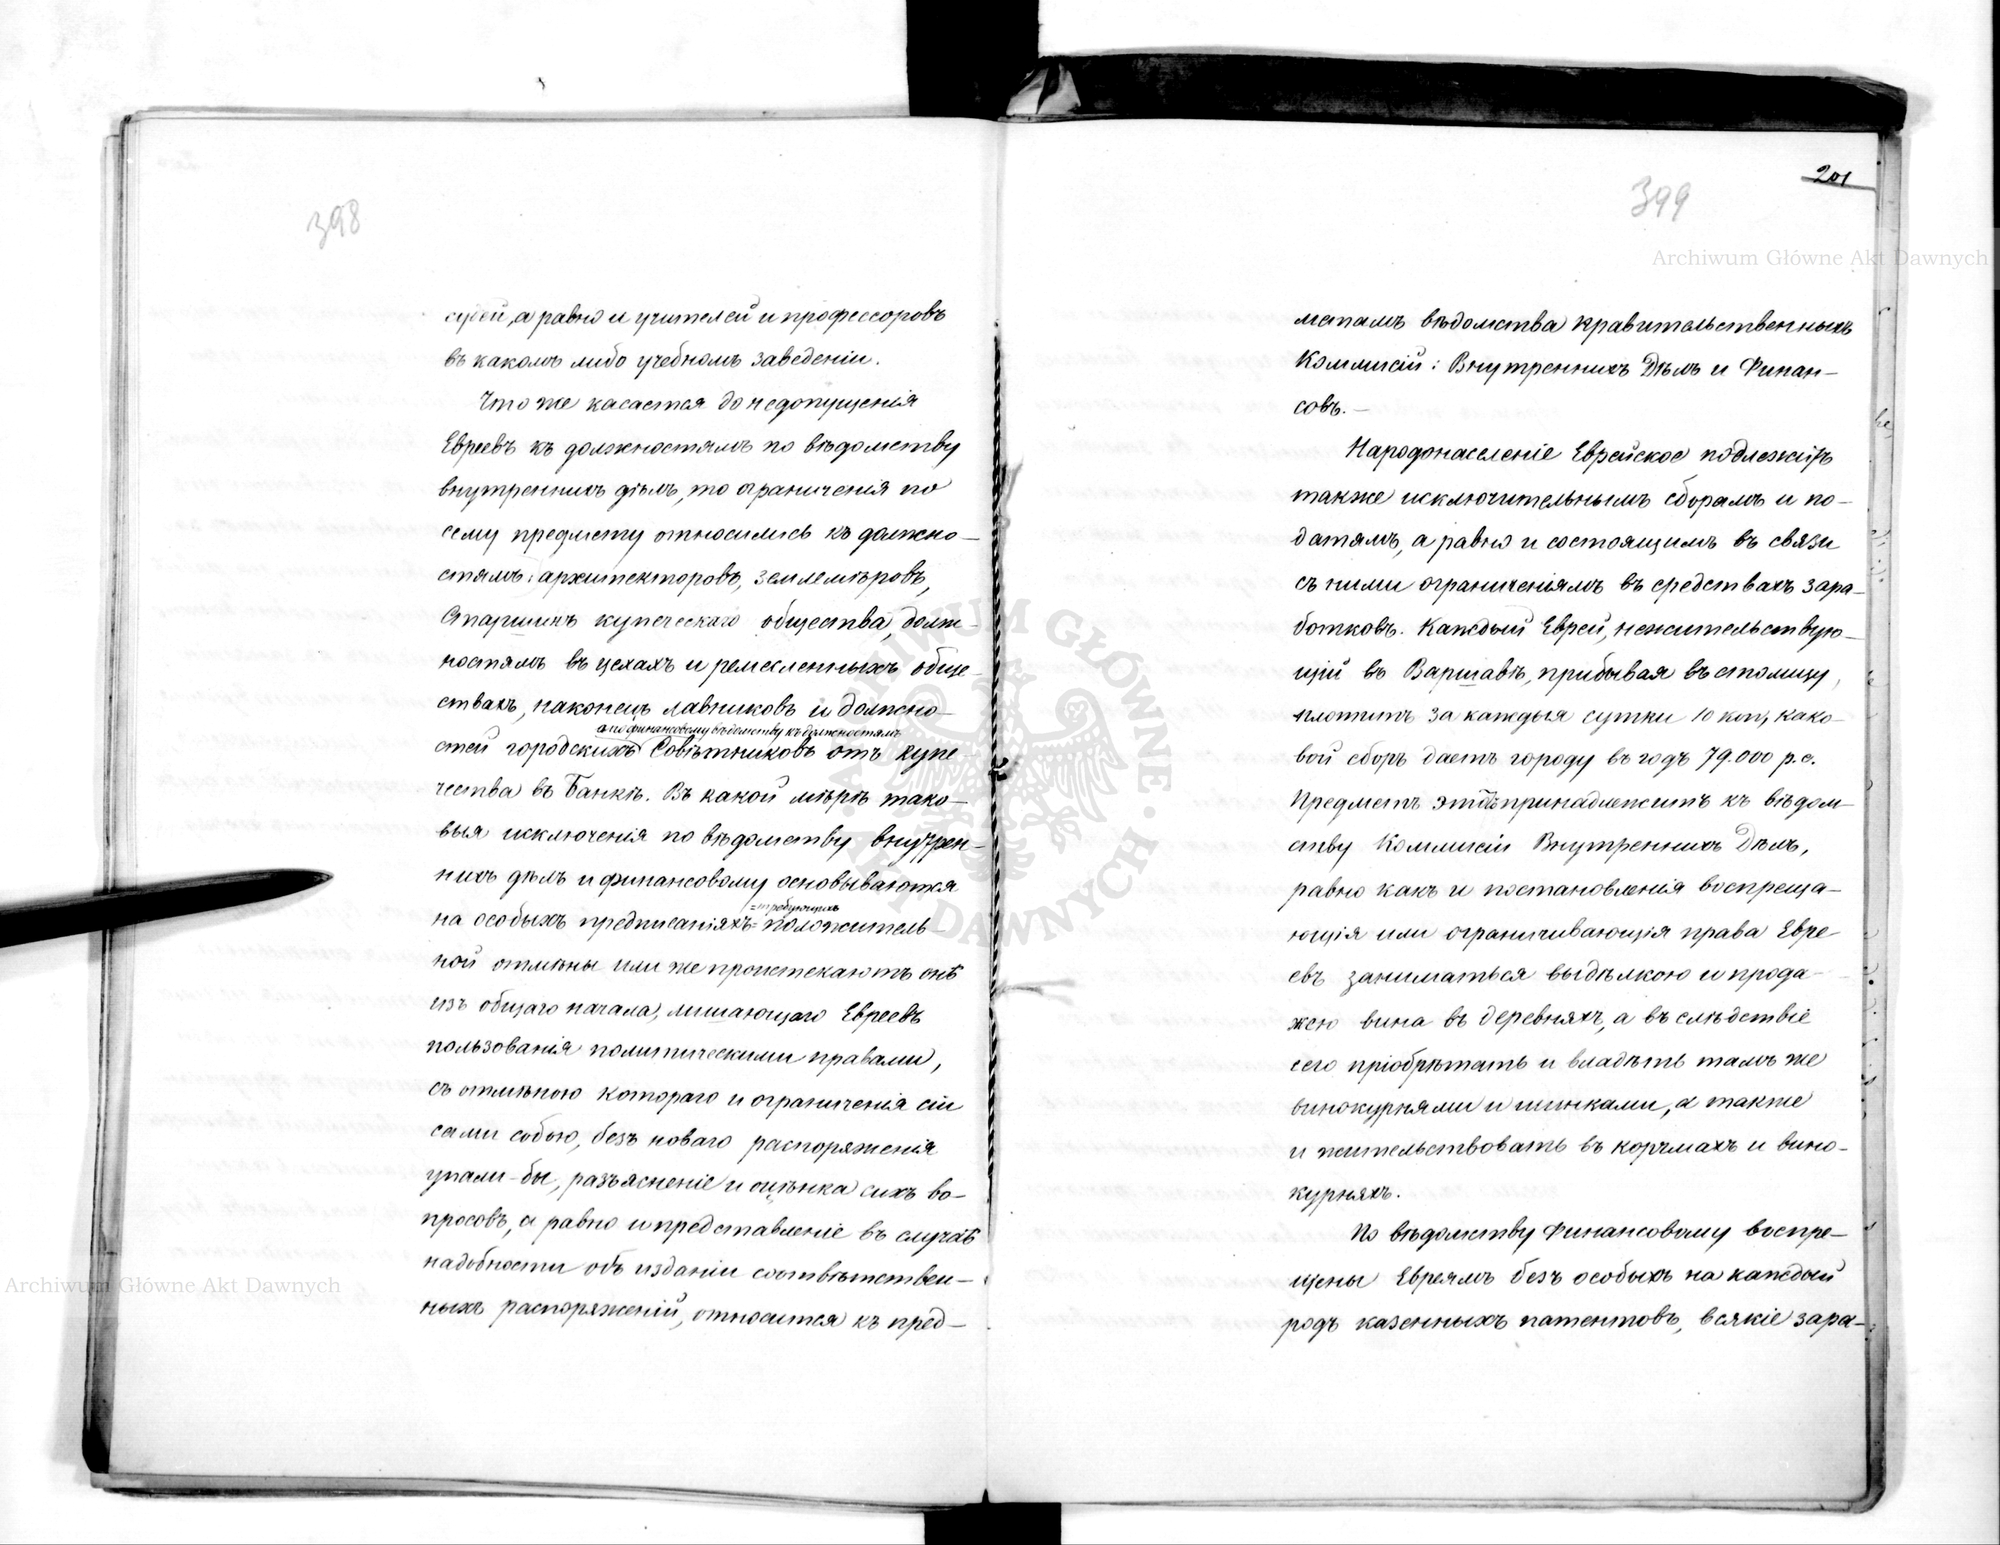 398
судей, а равно и учителей и профессоровъ
въ какомъ либо учебномъ заведеніи.
Что же касается до недопущенія
Евреевъ къ должностямъ по вѣдомству
внутреннихъ дѣлъ, то ограниченія по
сему предмету относились къ должно-
стямъ: архитекторовъ, землемѣровъ,
Старшинъ купеческаго общества, долж-
ностямъ въ цехахъ и ремесленныхъ обще-
ствахъ, наконецъ лавниковъ и должно-
а по финансовому вѣдомству къ должностямъ
стей городскихъ Совѣтниковъ отъ купе-
чества въ Банкѣ. Въ какой мѣрѣ тако-
выя исключенія по вѣдомству внутрен-
нихъ дѣлъ и финансовому основываются
=требующихъ
на особыхъ предписаніяхъ= положитель-
ной отмѣны или же проистекаютъ онѣ
изъ общаго начала, лишающаго Евреевъ
пользованія политическими правами,
съ отмѣною котораго и ограниченія сіи
сами собою, безъ новаго распоряженія
упали-бы, разъясненіе и оцѣнка сихъ во-
просовъ, а равно и представленіе въ случаѣ
надобности объ изданіи соотвѣтствен-
ныхъ распоряженій, относится къ пред-
201
399
метамъ вѣдомства Правительственныхъ
Коммисій: Внутреннихъ Дѣлъ и Финан-
совъ.-
Народонаселеніе Еврейское подлежитъ
также исключительнымъ сборамъ и по-
датямъ, а равно и состоящимъ въ связи
съ ними ограниченіямъ въ средствахъ зара-
ботковъ. Каждый Еврей, нежительствую-
щій въ Варшавѣ, прибывая въ столицу,
платитъ за каждыя сутки 10 коп, како-
вой сборъ даетъ городу въ годъ 79.000 р.с.
Предметъ этотъ принадлежитъ къ вѣдом-
ству Коммисіи Внутреннихъ Дѣлъ,
равно какъ и постановленія воспреща-
ющія или ограничивающія права Евре-
евъ заниматься выдѣлкою и прода-
жею вина въ деревняхъ, а въ слѣдствіе
сего пріобрѣтать и владѣть тамъ же
винокурнями и шинками, а также
и жительствовать въ корчмахъ и вино-
курняхъ.
По вѣдомству Финансовому воспре-
щены Евреямъ безъ особыхъ на каждый
родъ казенныхъ патентовъ, всякіе зара-
Archiwum Główne Akt Dawnych
Archiwum Główne Akt Dawnych
ARCHIWUM GŁÓWNE AKT DAWNYCH